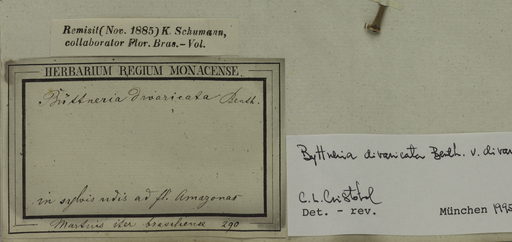 Remisit (Nov. 1885) K. Schumann,
collaborator Flor. Bras. – Vol.
HERBARIUM REGIUM MONACENSE.
Büttneria divaricata Benth.
in sylvis udis ad fl. Amazonas
Martius iter brasiliense 290
Byttneria divaricata Benth. v. divari
C.L. Cristóbal
Det. - rev. München 1995